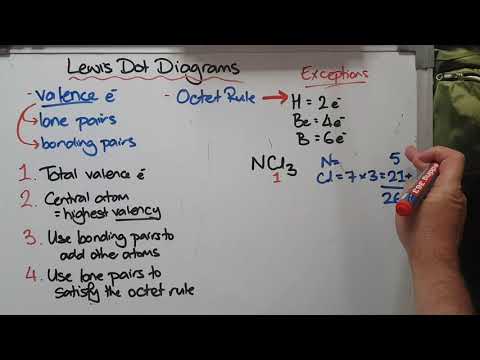 Lewis Dot Diagrams
- valence e⁻
lone pairs
bonding pairs
- Octet Rule →
Exceptions
H = 2e⁻
Be = 4e⁻
B = 6e⁻
1. Total valence e⁻
2. Central atom
= highest valency
3. Use bonding pairs to
add other atoms
4. Use lone pairs to
satisfy the octet rule
NCl₃
1
N= 5
Cl = 7 × 3 = 21 +
26